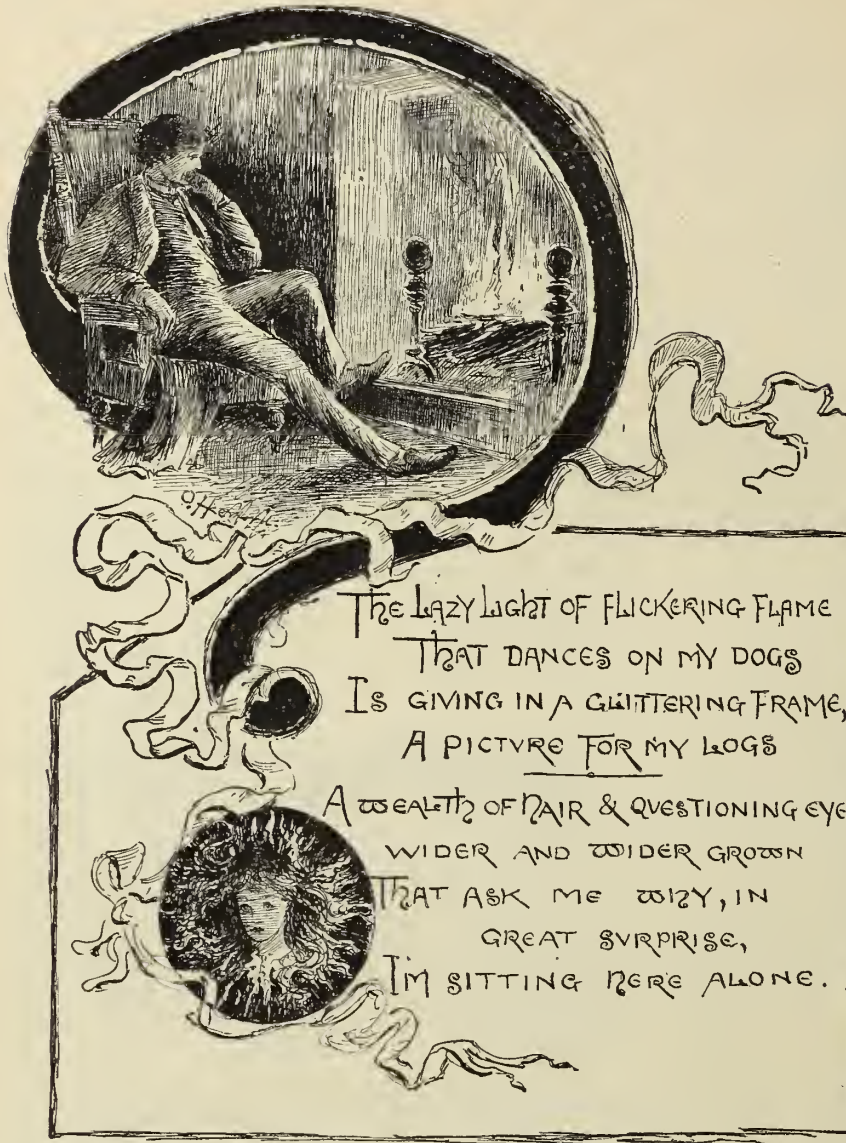 THE LAZY LIGHT OF FLICKERING FLAME
THAT DANCES ON MY DOGS
IS GIVING IN A GLITTERING FRAME,
A PICTVRE FOR MY LOGS
A WEALTH OF HAIR & QVESTIONING EYE
WIDER AND WIDER GROWN
THAT ASK ME WHY, IN
GREAT SVRPRISE,
I'M SITTING HERE ALONE.